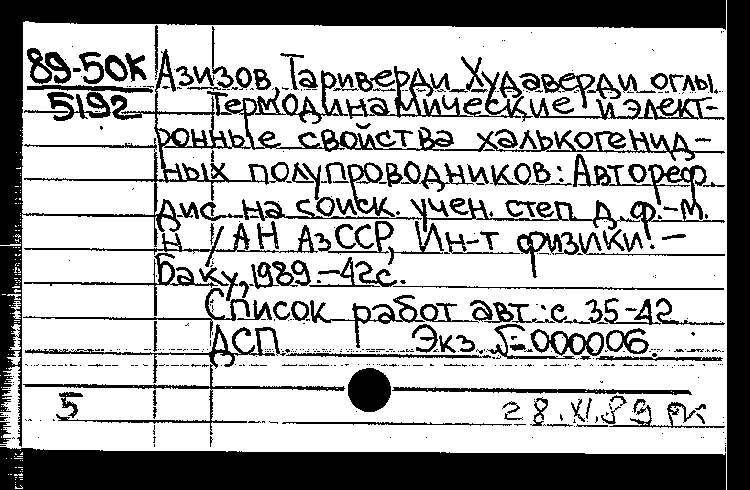 89-50К Азизов, Тариверди Худаверди оглы.
5192 Термодинамические и элект-
ронные свойства халькогенид-
ных полупроводников: Автореф.
дис. на соиск. учен. степ. д. ф.-м.
н. / АН АзССР, Ин-т физики. -
Баку, 1989. - 42 с.
Список работ авт.: с. 35-42.
ДСП. Экз. №=000006.
5 28.XI.89 РК